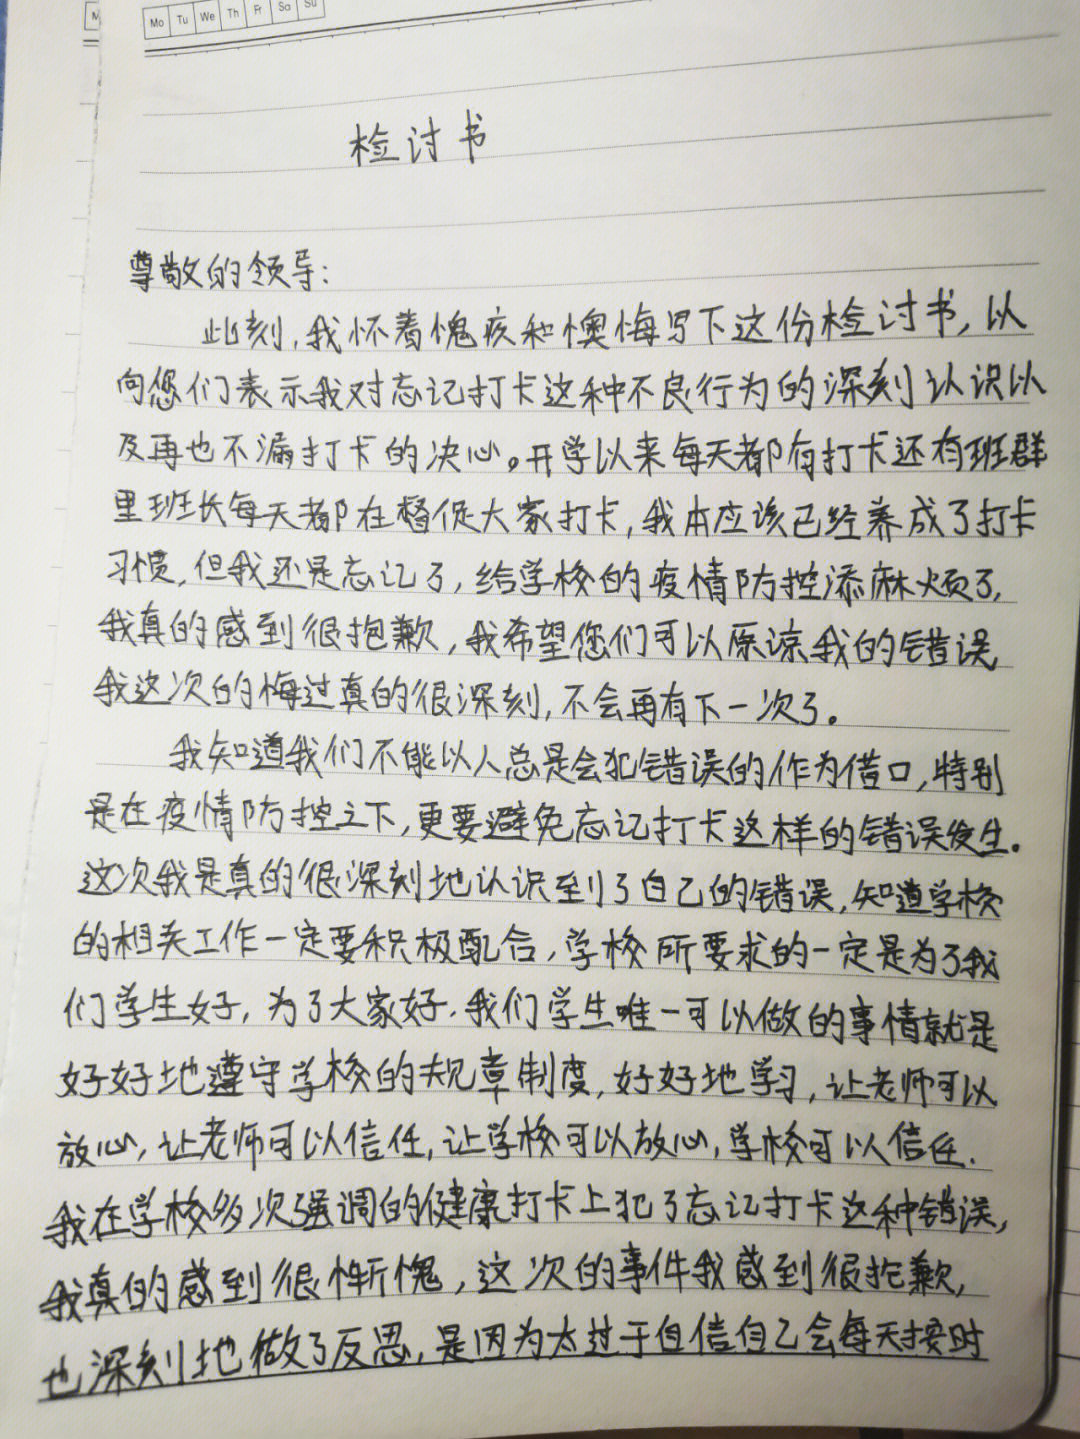 Mo Tu We Th Fr Sa Su
检讨书
尊敬的领导:
此刻,我怀着愧疚和懊悔写下这份检讨书,以
向您们表示我对忘记打卡这种不良行为的深刻认识以
及再也不漏打卡的决心。开学以来每天都有打卡还有班群
里班长每天都在督促大家打卡,我本应该已经养成了打卡
习惯,但我还是忘记了,给学校的疫情防控添麻烦了,
我真的感到很抱歉,我希望您们可以原谅我的错误
我这次的悔过真的很深刻,不会再有下一次了。
我知道我们不能以人总是会犯错误的作为借口,特别
是在疫情防控之下,更要避免忘记打卡这样的错误发生。
这次我是真的很深刻地认识到了自己的错误,知道学校
的相关工作一定要积极配合,学校所要求的一定是为了我
们学生好,为了大家好.我们学生唯一可以做的事情就是
好好地遵守学校的规章制度,好好地学习,让老师可以
放心,让老师可以信任,让学校可以放心,学校可以信任.
我在学校多次强调的健康打卡上犯了忘记打卡这种错误,
我真的感到很惭愧,这次的事件我感到很抱歉,
也深刻地做了反思,是因为太过于自信自己会每天按时